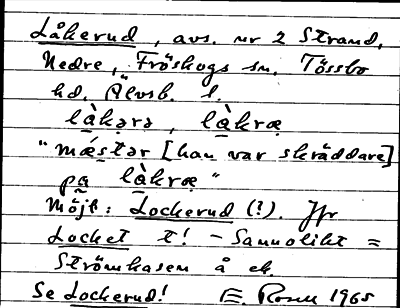 Låkerud, avs. nr 2 Strand,
Nedre, Fröskogs sn, Tössbo
hd. Älvsb. l.
lằkərə, lằkræ
"mǽstər [han var skräddare]
på lằkræ"
Möjl: Lockerud (?). Jfr
Locket t! – Sannolikt =
Strömhasen å ek.
Se Lockerud! E. Rosell 1965